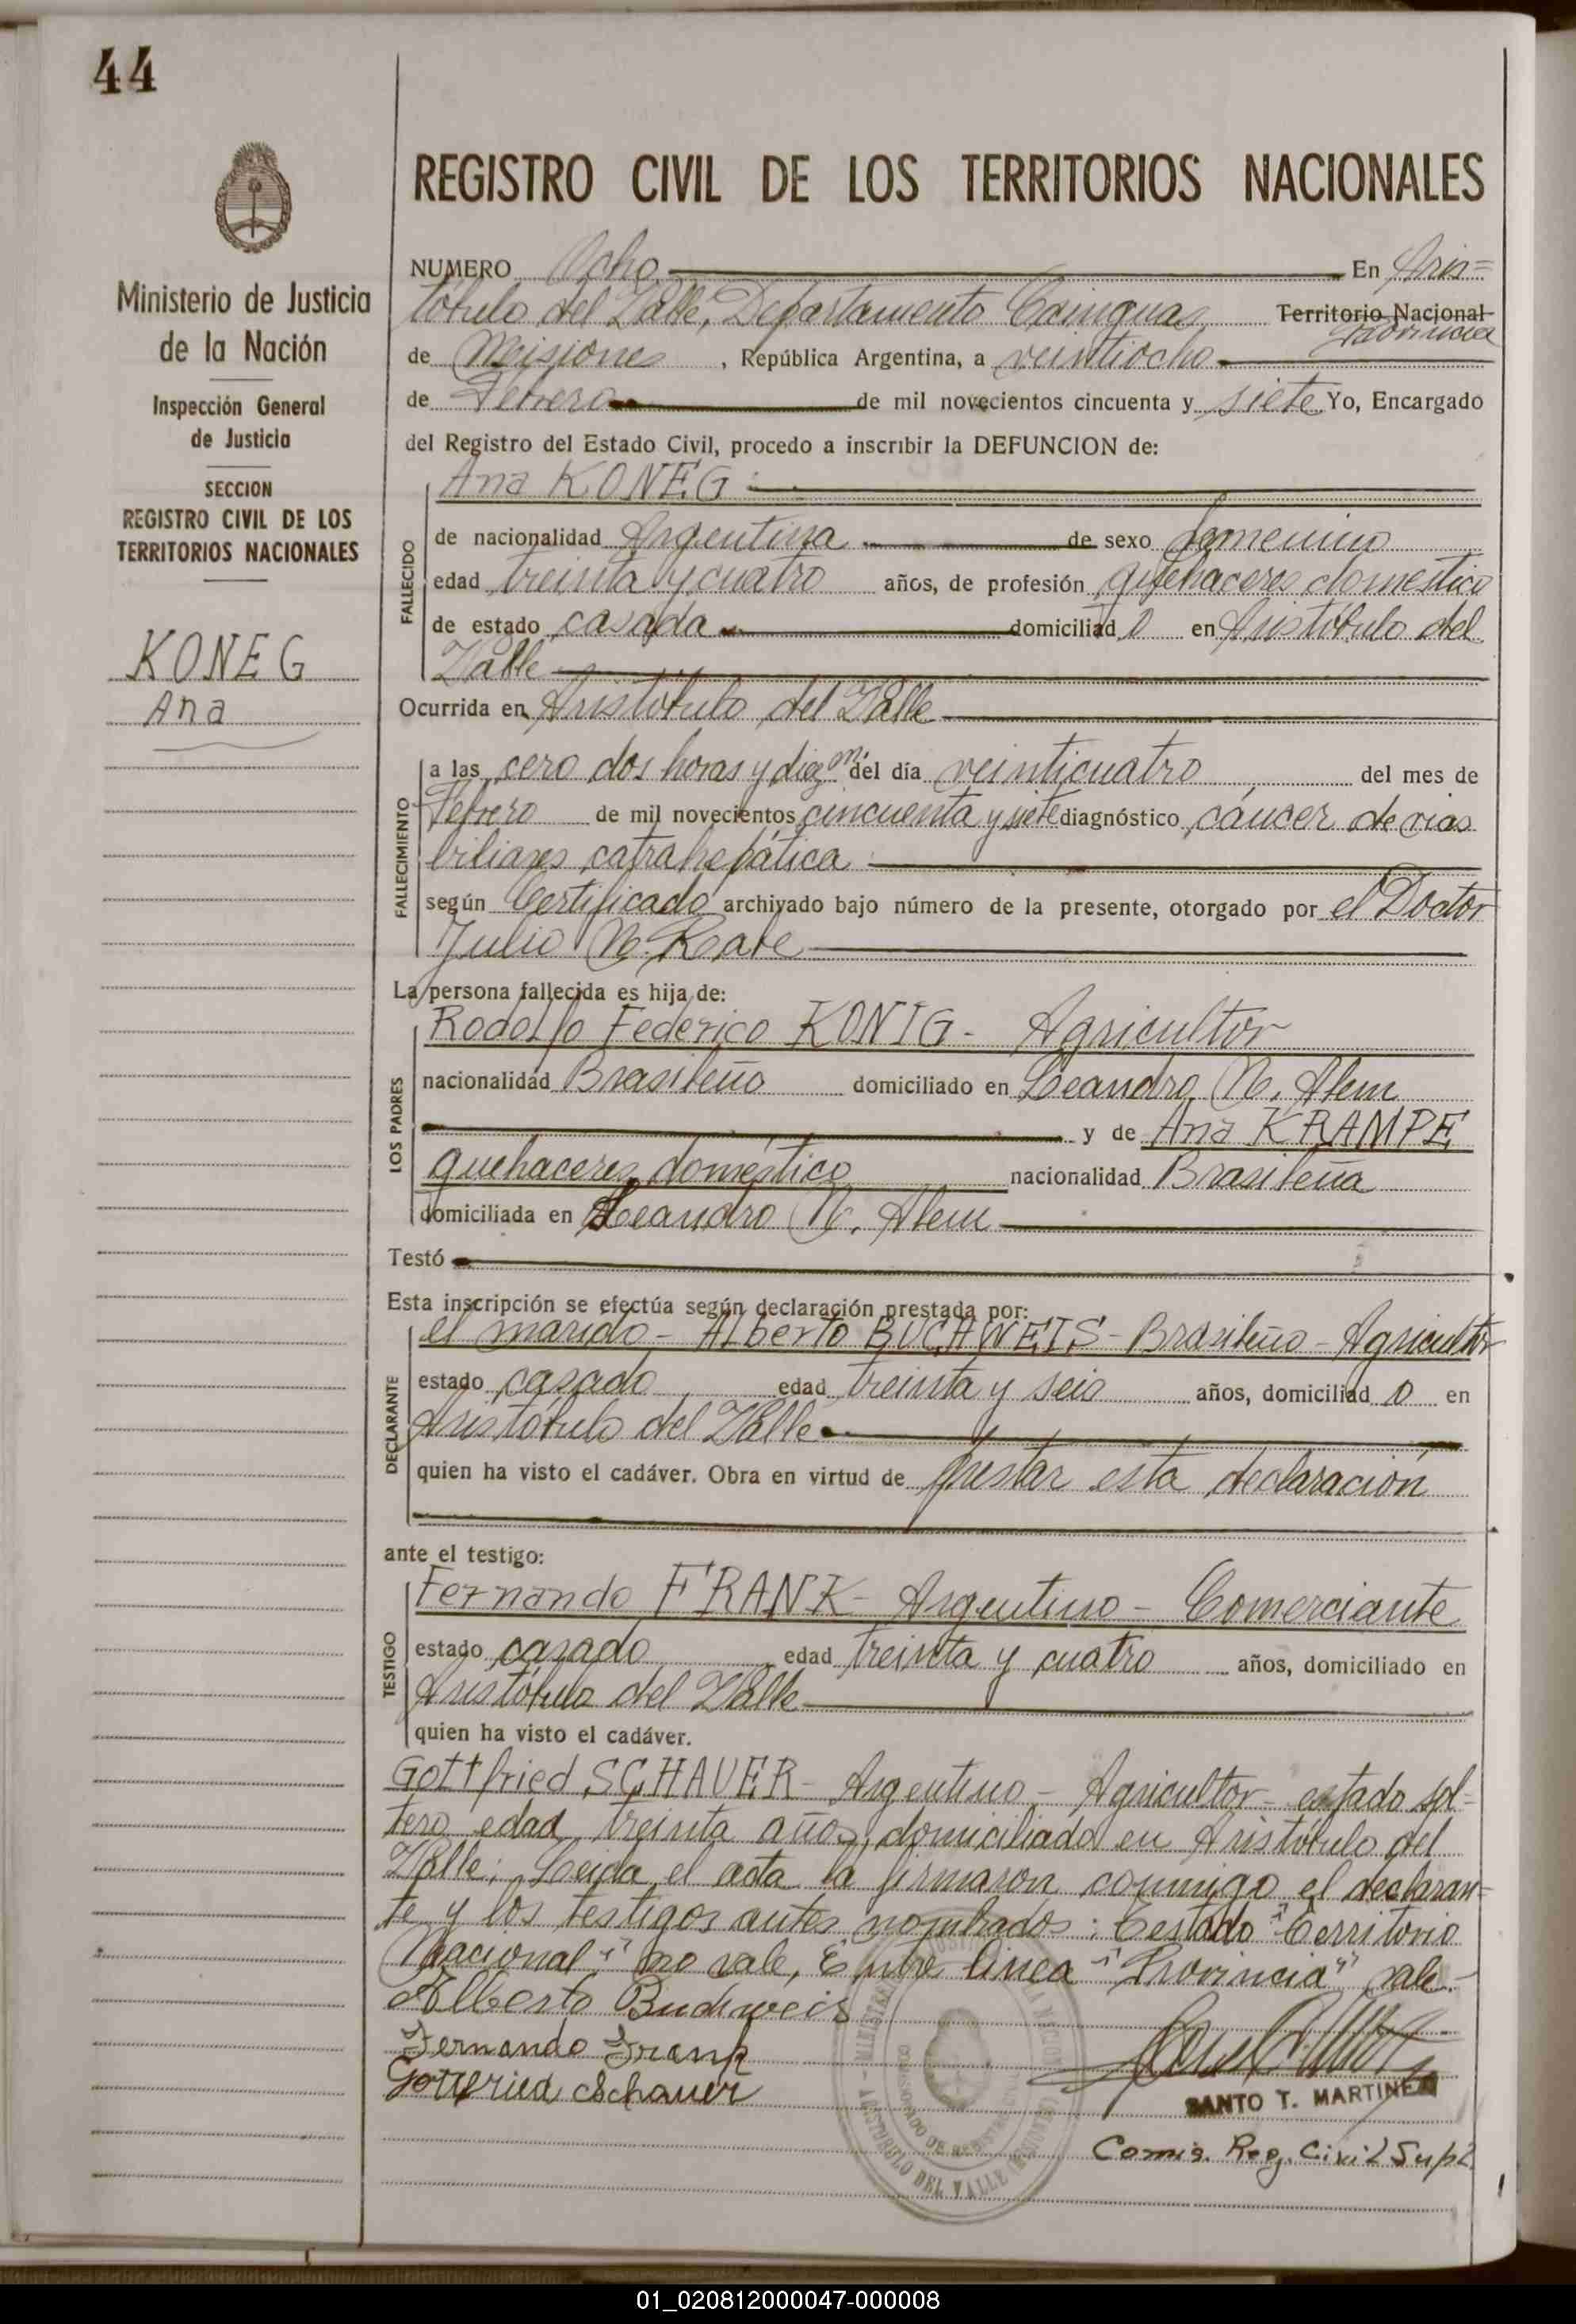 44
Ministerio de Justicia
de la Nación
Inspección General
de Justicia
SECCION
REGISTRO CIVIL DE LOS
TERRITORIOS NACIONALES
KONEG
Ana
REGISTRO CIVIL DE LOS TERRITORIOS NACIONALES
NUMERO Ocho En Aris=
tóbulo del Valle, Departamento Cainguas Territorio Nacional
Provincia
de Misiones, República Argentina, a veintiocho
de Febrero de mil novecientos cincuenta y siete Yo, Encargado
del Registro del Estado Civil, procedo a inscribir la DEFUNCION de:
Ana KONEG
FALLECIDO
de nacionalidad Argentina de sexo femenino
edad treinta y cuatro años, de profesión quehaceres doméstico
de estado casada domiciliad a en Aristóbulo del
Valle
Ocurrida en Aristóbulo del Valle
FALLECIMIENTO
a las cero dos horas y diez m. del día veinticuatro del mes de
Febrero de mil novecientos cincuenta y siete diagnóstico cáncer de vias
biliares catrahepática
según Certificado archivado bajo número de la presente, otorgado por el Doctor
Julio N.
La persona fallecida es hija de:
LOS PADRES
Rodolfo Federico KONIG - Agricultor
nacionalidad Brasileño domiciliado en Leandro N. Alem
y de Ana KRAMPE
quehaceres doméstico nacionalidad Brasileña
domiciliada en Leandro N. Alem
Testó
Esta inscripción se efectúa según declaración prestada por:
DECLARANTE
el marido - Alberto BUCHWEIS - Brasileño - Agricultor
estado casado edad treinta y seis años, domiciliad o en
Aristóbulo del Valle
quien ha visto el cadáver. Obra en virtud de prestar esta declaración
ante el testigo:
TESTIGO
Fernando FRANK - Argentino - Comerciante
estado casado edad treinta y cuatro años, domiciliado en
Aristóbulo del Valle
quien ha visto el cadáver.
Gottfried SCHAUER - Argentino - Agricultor - estado sol=
tero edad treinta años, domiciliado en Aristóbulo del
Valle; Leida el acta la firmaron conmigo el declaran=
te y los testigos antes nombrados: Testado "Territorio
Nacional" no vale, Entre linea "Provincia" vale.-
Alberto Buchweis
Fernando Frank
Gottfried Schauer
SANTO T. MARTINEZ
Comis. Reg. Civil Supl.
ARISTOBULO DEL VALLE
01_020812000047-000008